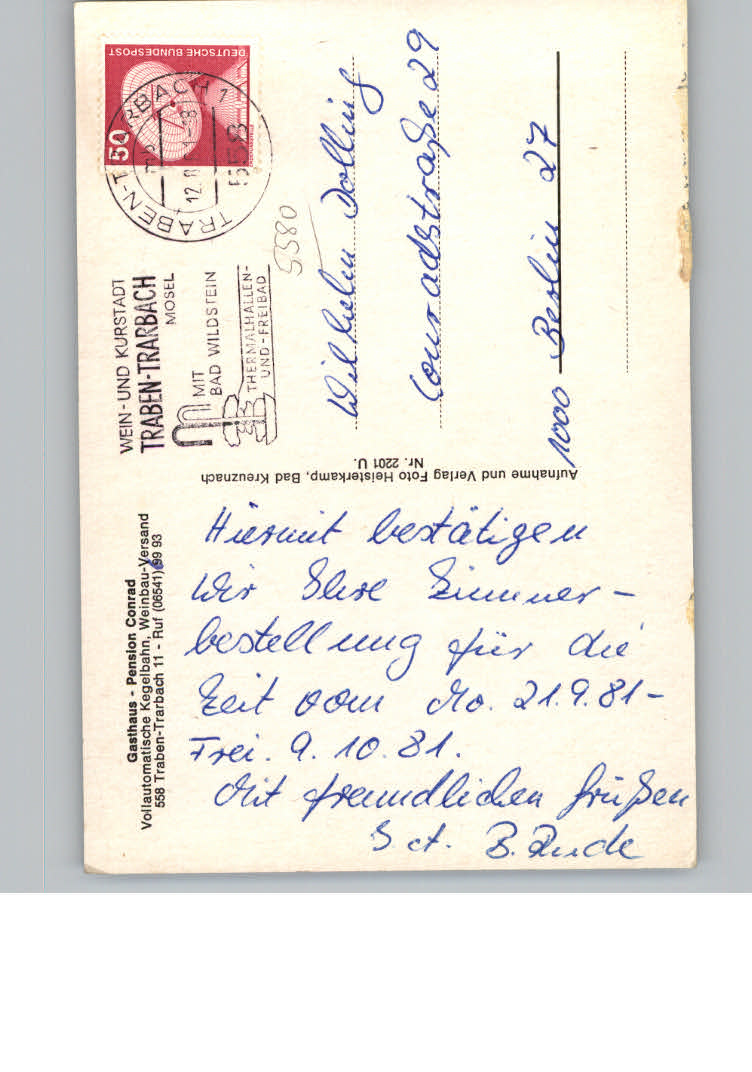 Gasthaus - Pension Conrad
Vollautomatische Kegelbahn, Weinbau-Versand
558 Traben-Trarbach 11 - Ruf (06541) 99 93
Hiermit bestätigen
wir Ihre Zimmer-
bestellung für die
Zeit vom Mo. 21.9.81-
Frei. 9.10.81.
Mit freundlichen Grüßen
B.
Aufnahme und Verlag Foto Heisterkamp, Bad Kreuznach
Nr. 2201 U.
WEIN- UND KURSTADT
TRABEN-TRARBACH
MOSEL
MIT
BAD WILDSTEIN
THERMALHALLEN-
UND-FREIBAD
DEUTSCHE BUNDESPOST
50
TRABEN-TRARBACH 1
5580
Wilhelm Dolling
Conradstraße 29
1000 Berlin 27